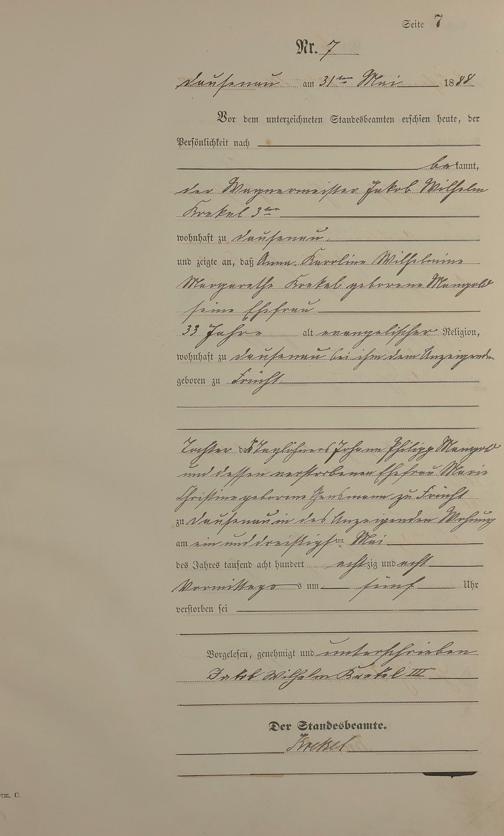 Seite 7
Nr. 7
Dausenau am 31ten Mai 1888
Vor dem unterzeichneten Standesbeamten erschien heute, der
Persönlichkeit nach
bekannt,
der Wagnermeister Jakob Wilhelm
Krekel 3ter
wohnhaft zu Dausenau
und zeigte an, daß Anna Karoline Wilhelmine
Margarethe Krekel geborene Mangold
seine Ehefrau
33 Jahre alt evangelischer Religion,
wohnhaft zu Dausenau bei ihm dem Anzeigenden
geboren zu Frücht
Tochter des Taglöhners Johann Philipp Mangold
und dessen verstorbenen Ehefrau Marie
Christine geborene zu Frücht
zu Dausenau in des Anzeigenden Wohnung
am ein und dreißigsten Mai
des Jahres tausend acht hundert achtzig und acht
Vormittags um fünf Uhr
verstorben sei
Vorgelesen, genehmigt und unterschrieben
Jakob Wilhelm Krekel III
Der Standesbeamte.
Krekel